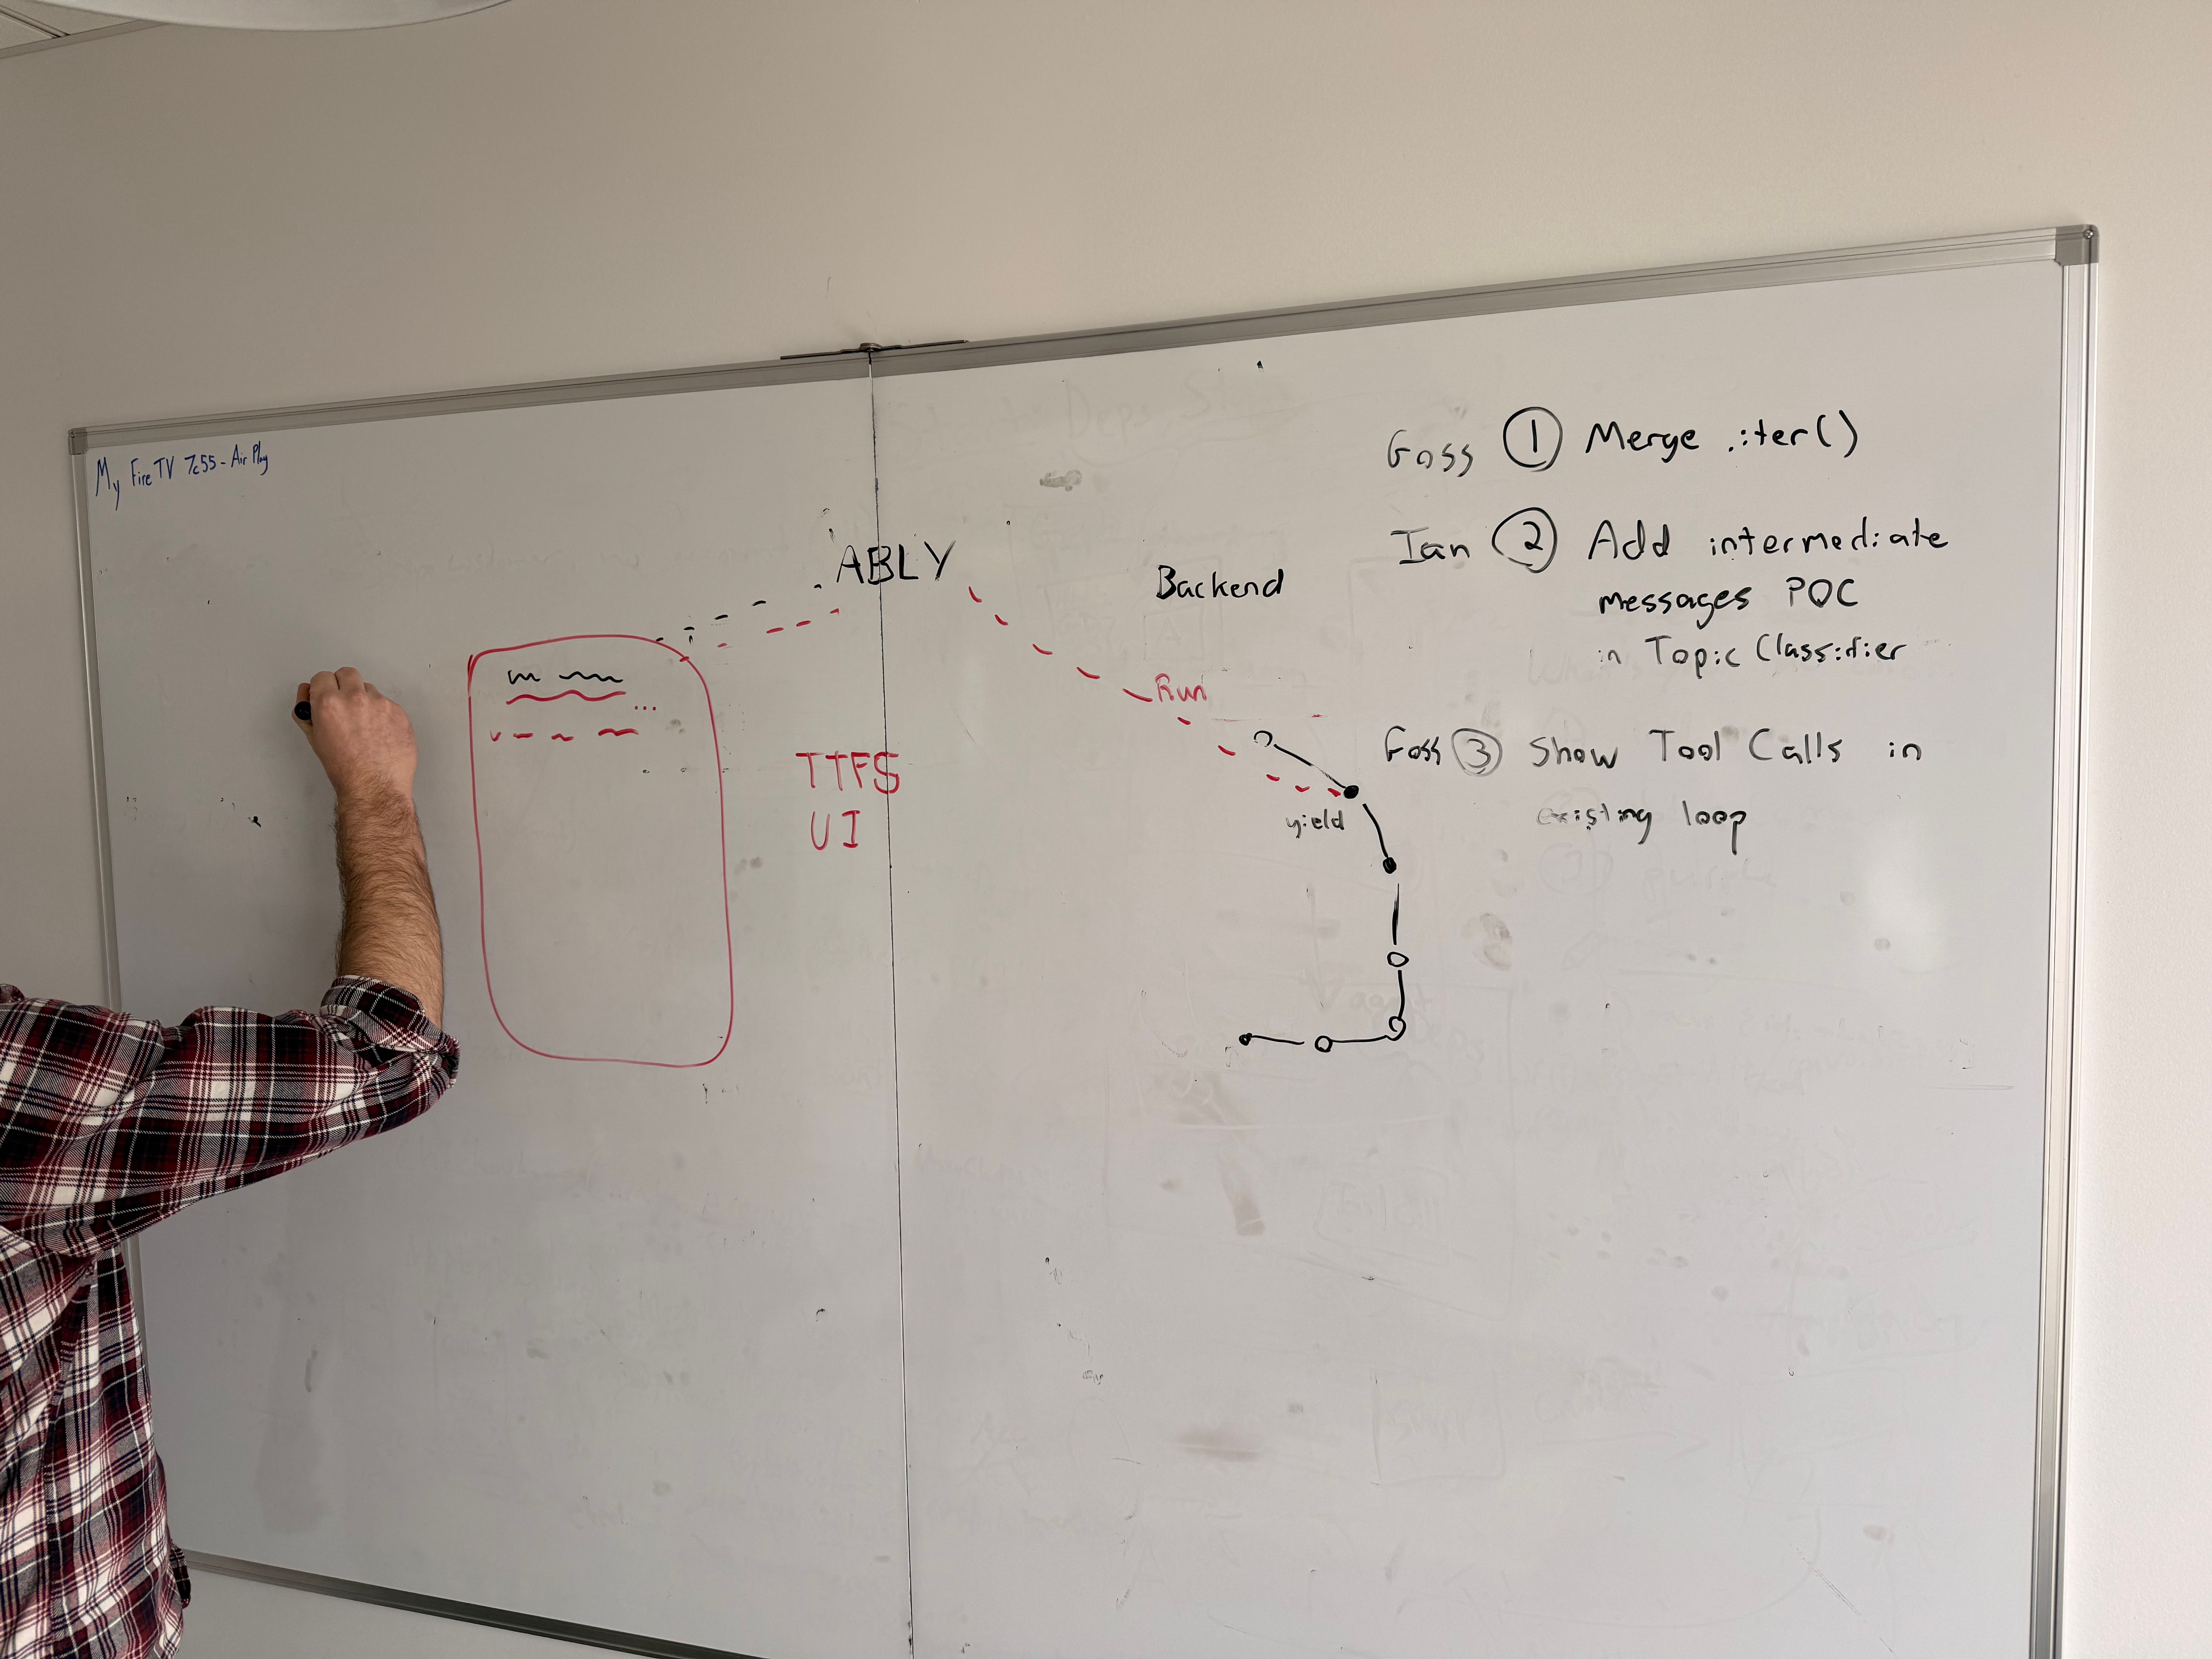 My FireTV 7c55-AirPlay
ABLY
Backend
Run
yield
TTFS
UI
Goss 1 Merge .iter()
Ian 2 Add intermediate
messages POC
in Topic Classifier
Goss 3 Show Tool Calls in
existing loop